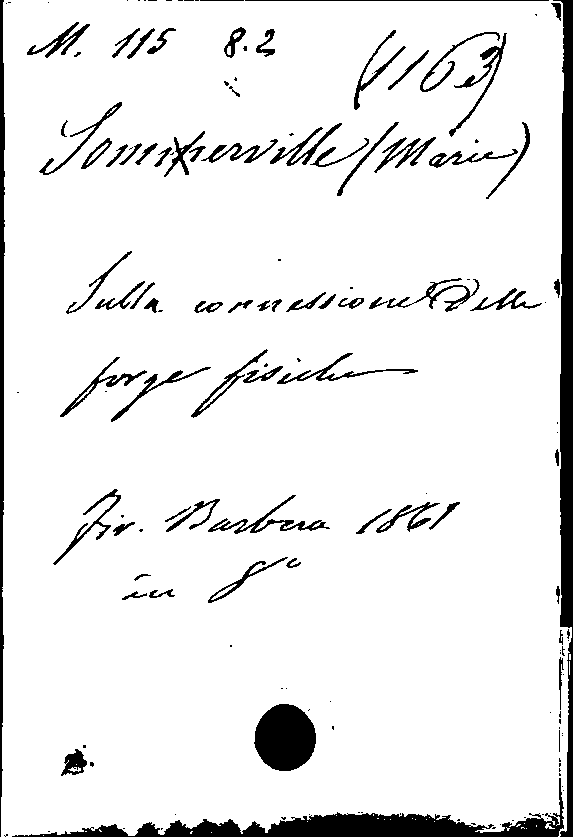 M. 115 8.2 (1163)
Sommerville (Marie)
Sulla connessione delle
forze fisiche
Fir. Barbera 1861
in 8°